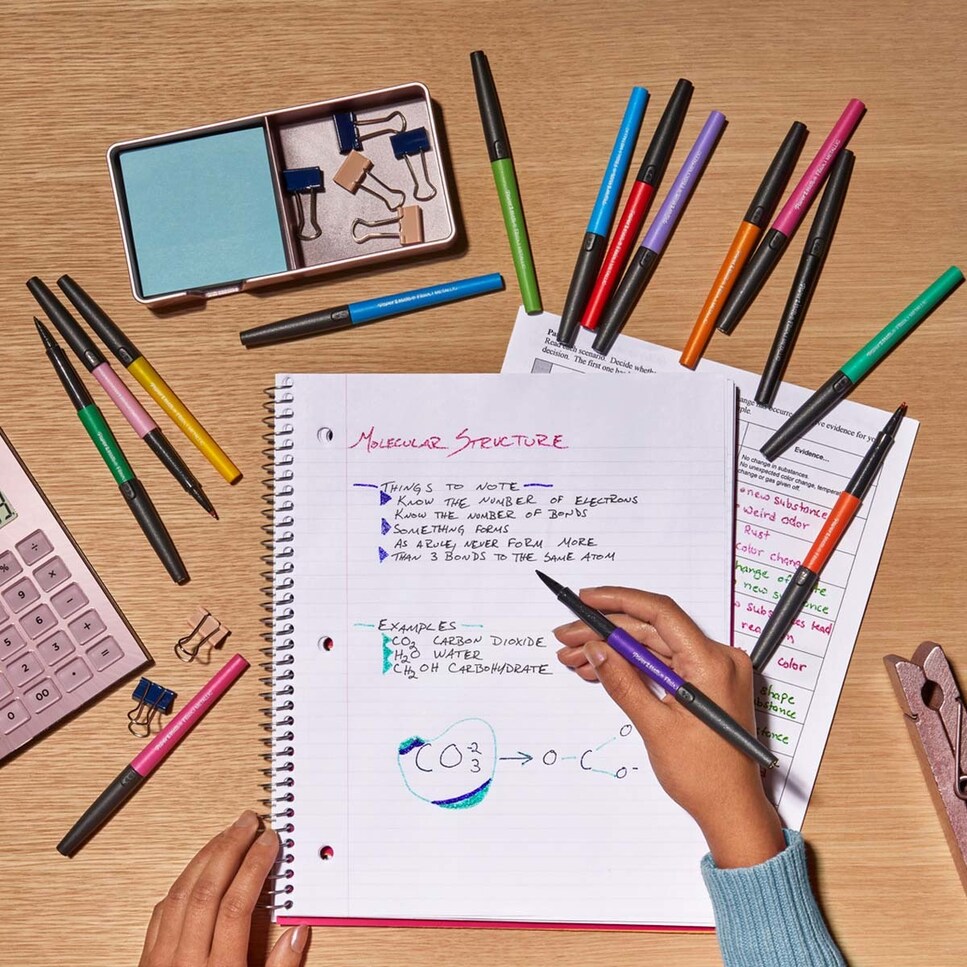 MOLECULAR STRUCTURE
THINGS TO NOTE
KNOW THE NUMBER OF ELECTRONS
KNOW THE NUMBER OF BONDS
SOMETHING FORMS
AS A RULE, NEVER FORM MORE
THAN 3 BONDS TO THE SAME ATOM
EXAMPLES
CO₂ CARBON DIOXIDE
H₂O WATER
CH₂OH CARBOHYDRATE
CO₃⁻² → O - C
O
O-
Read each scenario. Decide wheth
decision. The first one ha
ange has occurre
ve evidence for you
ple.
Evidence...
No change in substances.
No unexpected color change, tempera
or gas given off.
new substance
weird odor
Rust
color chang
hange of
new substance
new substances lead
color
shape
substance
÷
%
×
9
-
6
+
5
3
=
2
00
0